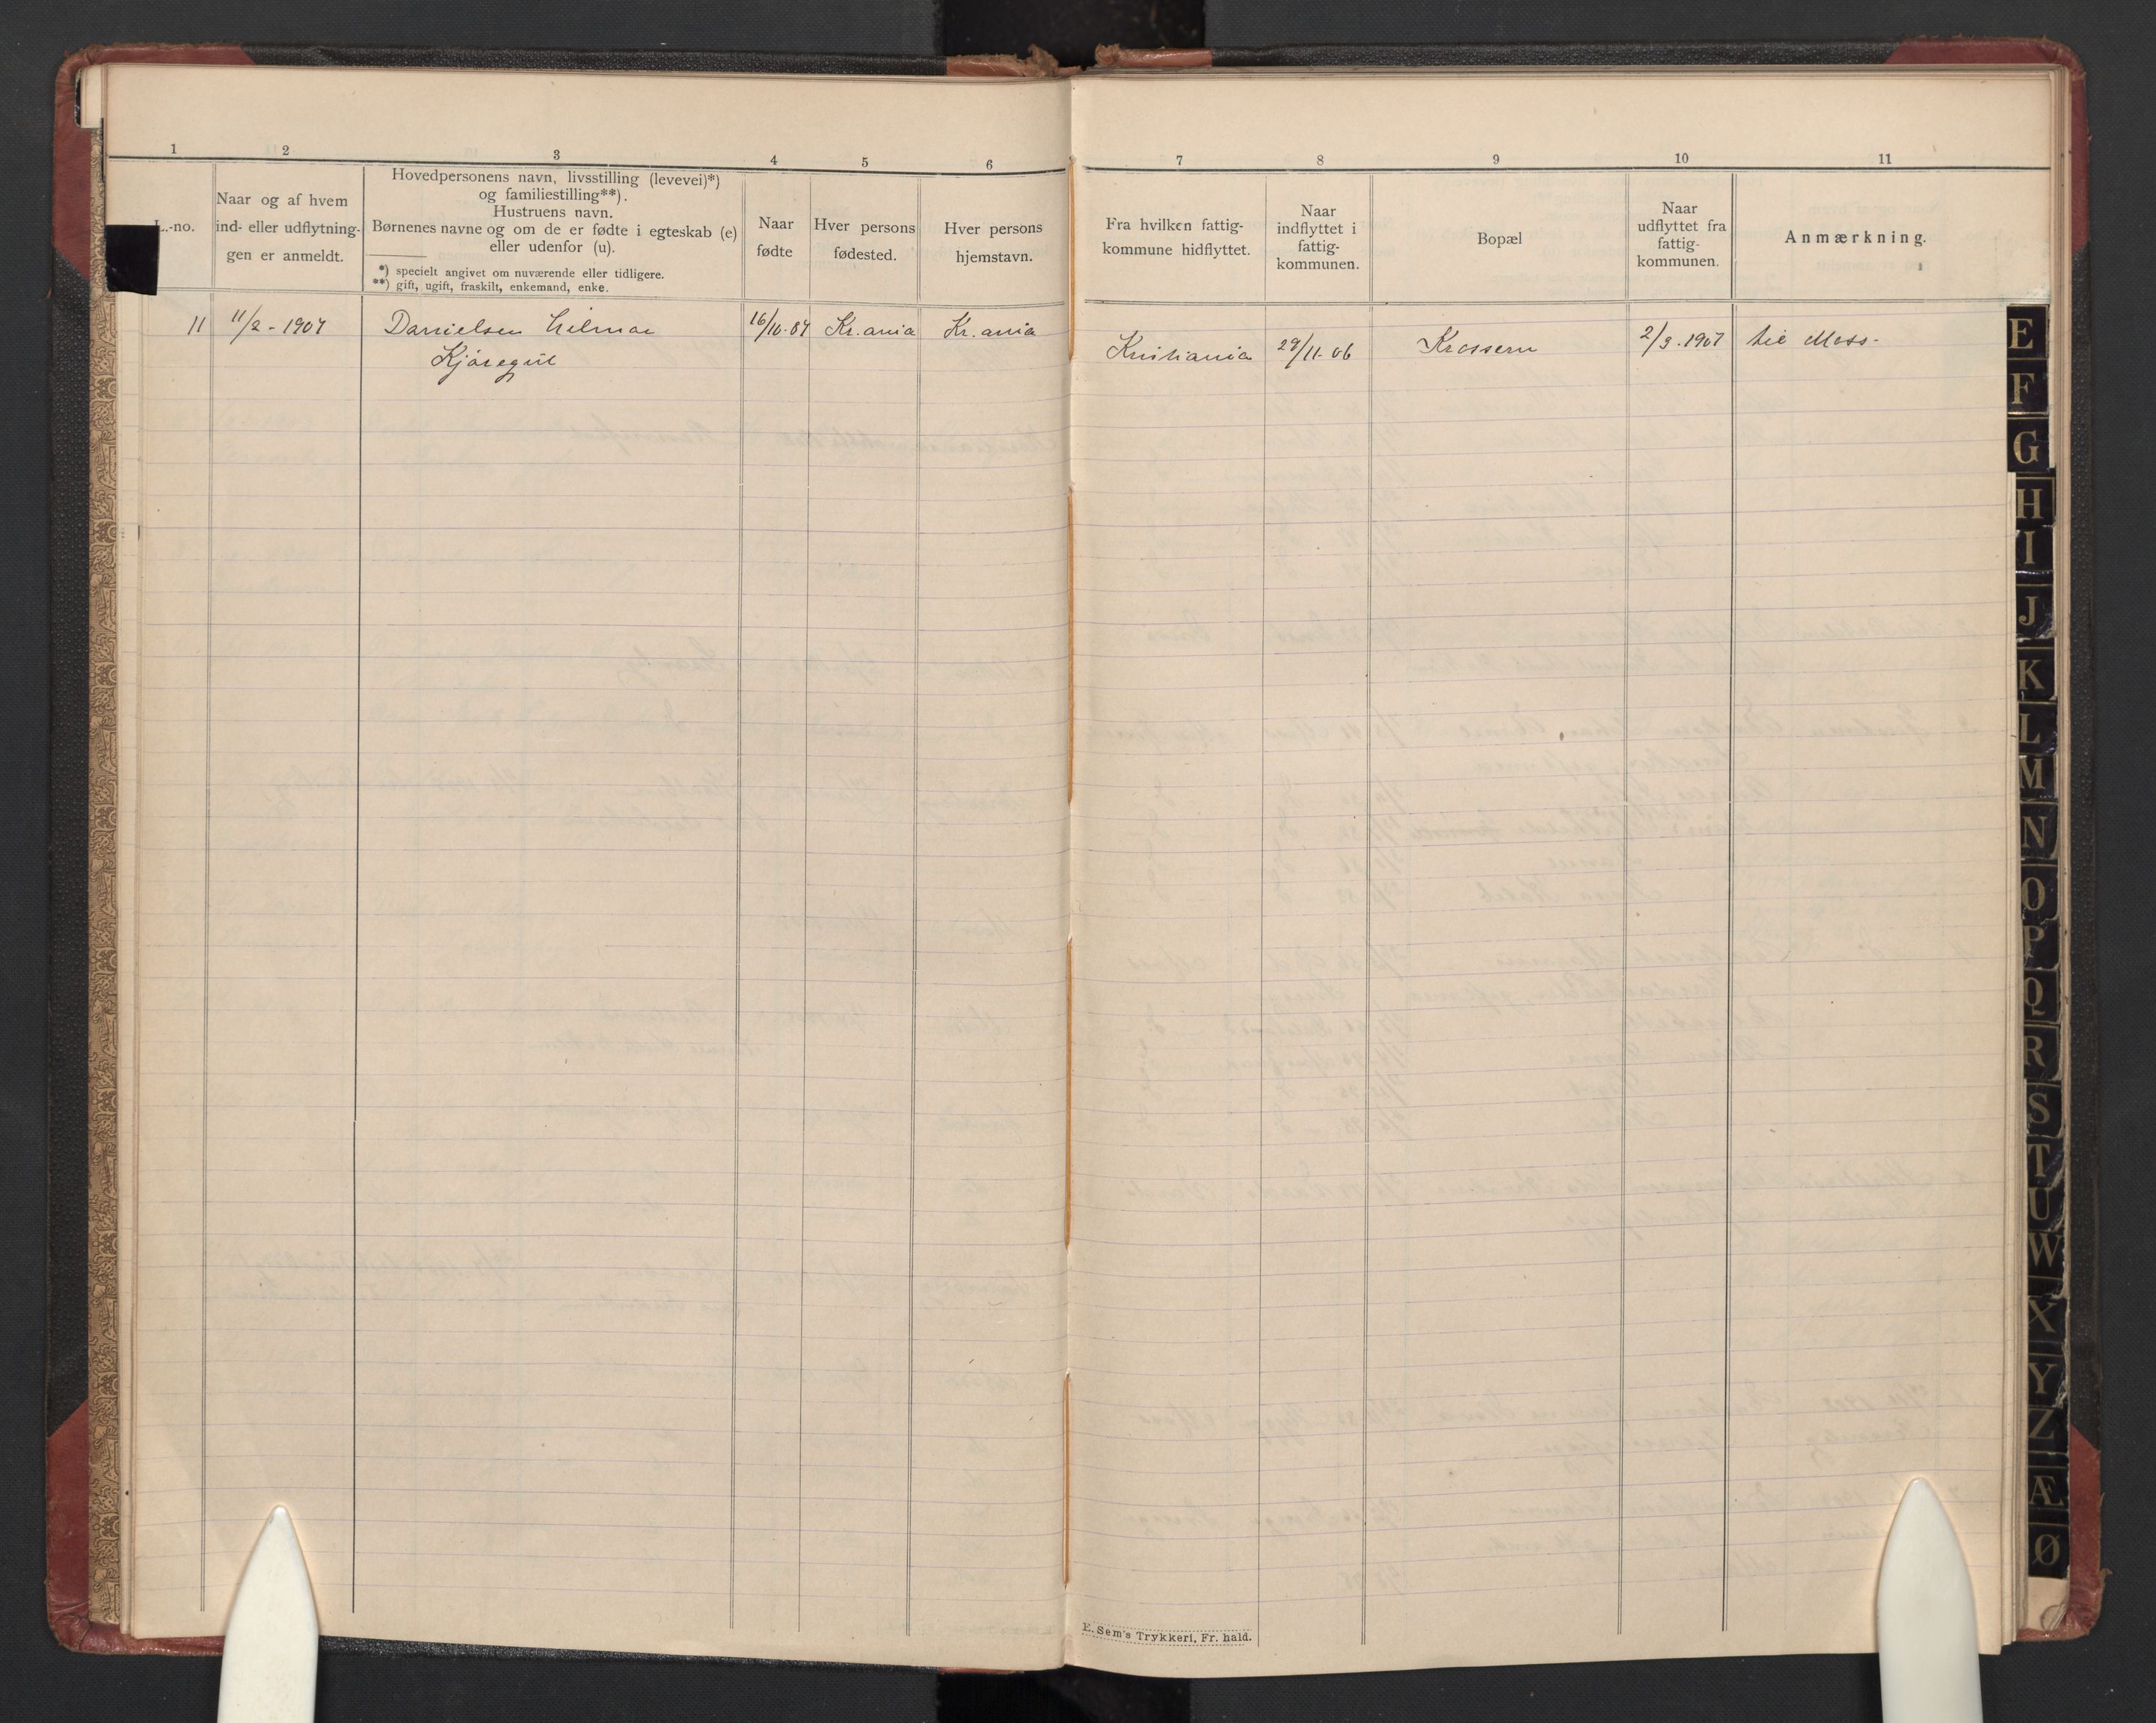 1 2 3 4 5 6 7 8 9 10 11
L.-no.
Naar og af hvem
ind- eller udflytnin-
gen er anmeldt.
Hovedpersonens navn, livsstilling (levevei)*)
og familiestilling**).
Hustruens navn.
Børnenes navne og om de er fødte i egteskab (e)
eller udenfor (u).
*) specielt angivet om nuværende eller tidligere.
**) gift, ugift, fraskilt, enkemand, enke.
Naar
fødte
Hver persons
fødested.
Hver persons
hjemstavn.
Fra hvilken fattig-
kommune hidflyttet.
Naar
indflyttet i
fattig-
kommunen.
Bopæl
Naar
udflyttet fra
fattig-
kommunen.
Anmærkning.
11 11/2 - 1907 Danielsen Hilmar 16/10.87 Kr.ania Kr.ania Kristiania 28/11-06 Krossern 2/3.1907 til Moss.
Kjøregut
E. Sem's Trykkeri, Fr. hald.
E
F
G
H
I
J
K
L
M
N
O
P
Q
R
S
T
U
W
X
Y
Z
Æ
Ø